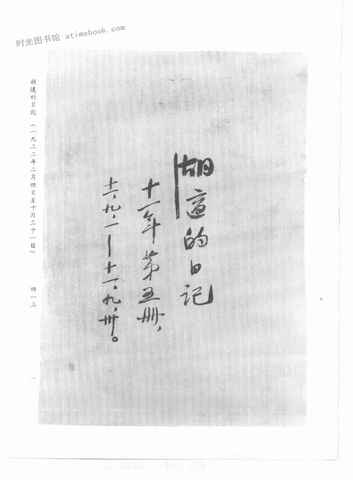 时光图书馆 atimebook.com
胡適的日記
十一年第五册,
十一,九,一—十一,九,卅。
胡適的日記 (一九二二年二月四日至十月二十一日)